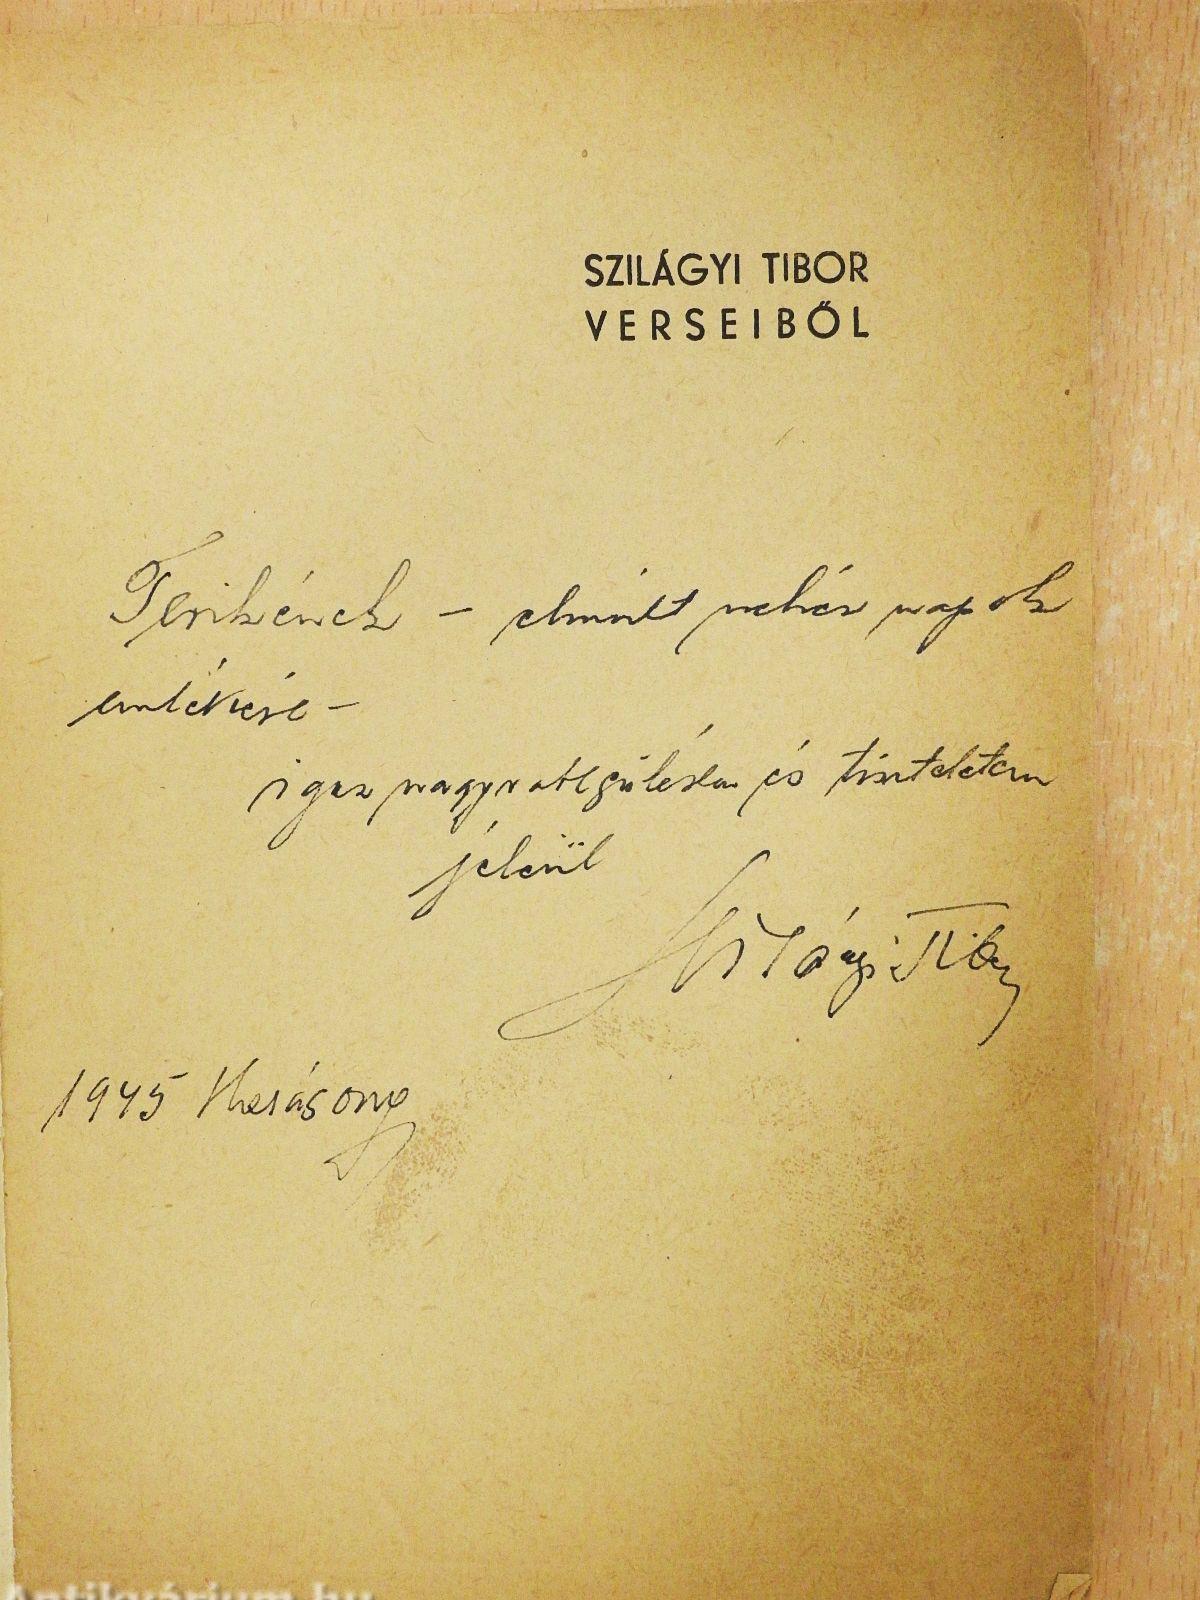 SZILÁGYI TIBOR
VERSEIBŐL
Terikének – elmúlt nehéz napok
emlékére –
igaz nagyrabecsülésem és tiszteletem
jeléül
Szilágyi Tibor
1945 Karácsony
Antikvárium.hu